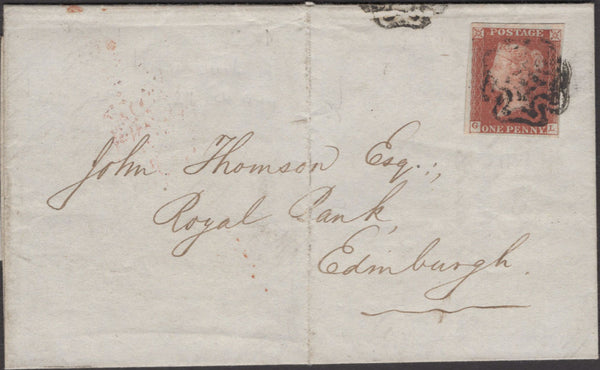 POSTAGE
G L
ONE PENNY
John Thomson Esq:,
Royal Bank,
Edinburgh.